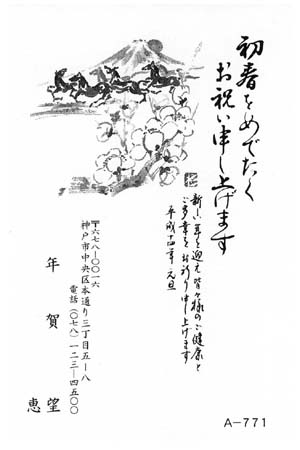 初春をめでたく
お祝い申し上げます
新しい年を迎え皆々様のご健康と
ご多幸をお祈り申し上げます
平成十四年 元旦
〒六七八-〇〇一六
神戸市中央区本通り三丁目五-八
電話(〇七八)一二三-四五〇〇
年賀
恵望
A-771